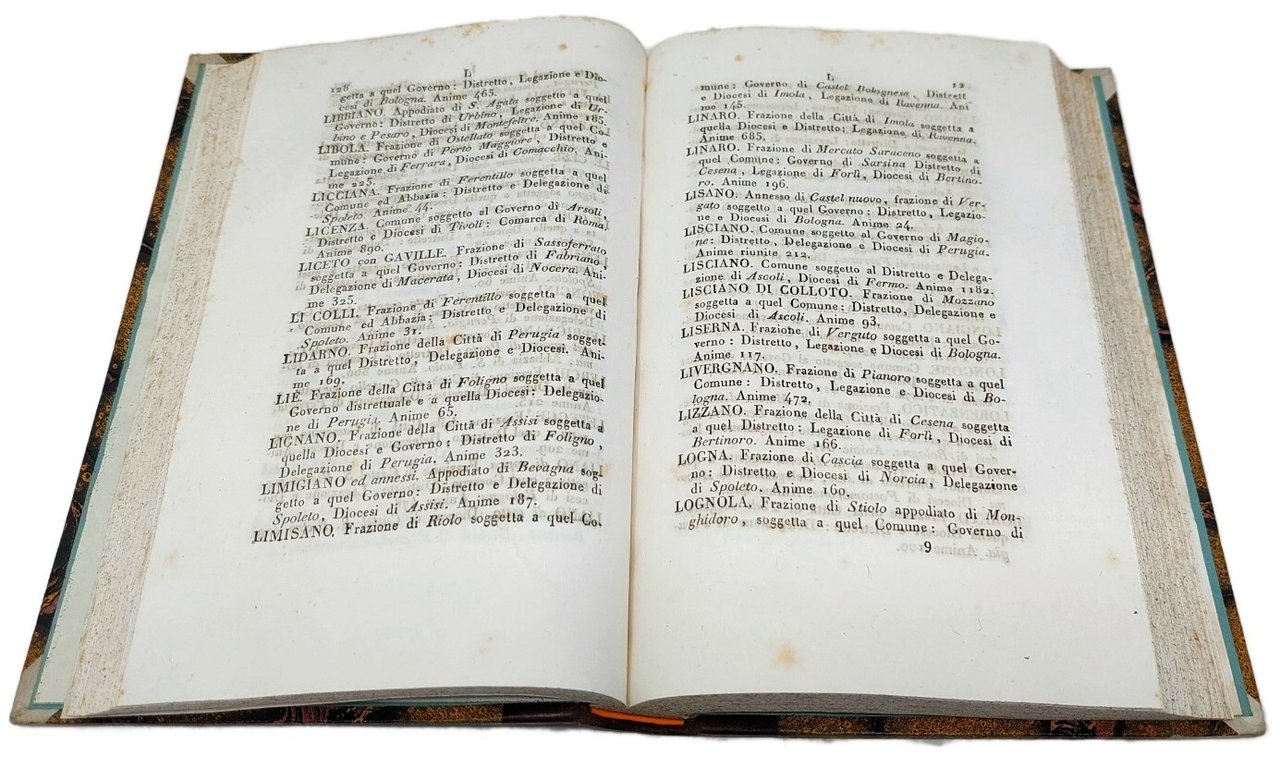 128
L
getta a quel Governo: Distretto, Legazione e Dio-
cesi di Bologna. Anime 465.
LIBBIANO. Appodiato di S. Agata soggetto a quel
Governo: Distretto di Urbino, Legazione di Ur-
bino e Pesaro, Diocesi di Montefeltre. Anime 185.
LIBOLA. Frazione di Ostellato soggetta a quel Co-
mune: Governo di Porto Maggiore, Distretto e
Legazione di Ferrara, Diocesi di Comacchio. Ani-
me 225.
LICCIANA. Frazione di Ferentillo soggetta a quel
Comune ed Abbazia: Distretto e Delegazione di
Spoleto. Anime 44.
LICENZA. Comune soggetto al Governo di Arsoli,
Distretto e Diocesi di Tivoli: Comarca di Roma.
Anime 890.
LICETO con GAVILLE. Frazione di Sassoferrato
soggetta a quel Governo: Distretto di Fabriano,
Delegazione di Macerata, Diocesi di Nocera. Ani-
me 325.
LI COLLI. Frazione di Ferentillo soggetta a quel
Comune ed Abbazia: Distretto e Delegazione di
Spoleto. Anime 31.
LIDARNO. Frazione della Città di Perugia sogget-
ta a quel Distretto, Delegazione e Diocesi. Ani-
me 169.
LIÈ. Frazione della Città di Foligno soggetta a quel
Governo distrettuale e a quella Diocesi: Delegazio-
ne di Perugia. Anime 65.
LIGNANO. Frazione della Città di Assisi soggetta a
quella Diocesi e Governo: Distretto di Foligno,
Delegazione di Perugia. Anime 323.
LIMIGIANO ed annessi. Appodiato di Bevagna sog-
getto a quel Governo: Distretto e Delegazione di
Spoleto, Diocesi di Assisi. Anime 187.
LIMISANO. Frazione di Riolo soggetta a quel Co-
L
12
mune: Governo di Castel Bolognese, Distrett
e Diocesi di Imola, Legazione di Ravenna. Ani
me 146.
LINARO. Frazione della Città di Imola soggetta a
quella Diocesi e Distretto; Legazione di Ravenna.
Anime 685.
LINARO. Frazione di Mercato Saraceno soggetta a
quel Comune: Governo di Sarsina Distretto di
Cesena, Legazione di Forlì, Diocesi di Bertino-
ro. Anime 196.
LISANO. Annesso di Castel nuovo, frazione di Ver-
gato soggetto a quel Governo: Distretto, Legazio-
ne e Diocesi di Bologna. Anime 24.
LISCIANO. Comune soggetto al Governo di Magio-
ne: Distretto, Delegazione e Diocesi di Perugia.
Anime riunite 212.
LISCIANO. Comune soggetto al Distretto e Delega-
zione di Ascoli, Diocesi di Fermo. Anime 1182.
LISCIANO DI COLLOTO. Frazione di Mozzano
soggetta a quel Comune: Distretto, Delegazione e
Diocesi di Ascoli. Anime 93.
LISERNA. Frazione di Verguto soggetta a quel Go-
verno: Distretto, Legazione e Diocesi di Bologna.
Anime 117.
LIVERGNANO. Frazione di Pianoro soggetta a quel
Comune: Distretto, Legazione e Diocesi di Bo-
logna. Anime 472.
LIZZANO. Frazione della Città di Cesena soggetta
a quel Distretto: Legazione di Forlì, Diocesi di
Bertinoro. Anime 166.
LOGNA. Frazione di Cascia soggetta a quel Gover-
no: Distretto e Diocesi di Norcia, Delegazione
di Spoleto. Anime 160.
LOGNOLA. Frazione di Stiolo appodiato di Mon-
ghidoro, soggetta a quel Comune: Governo di
9